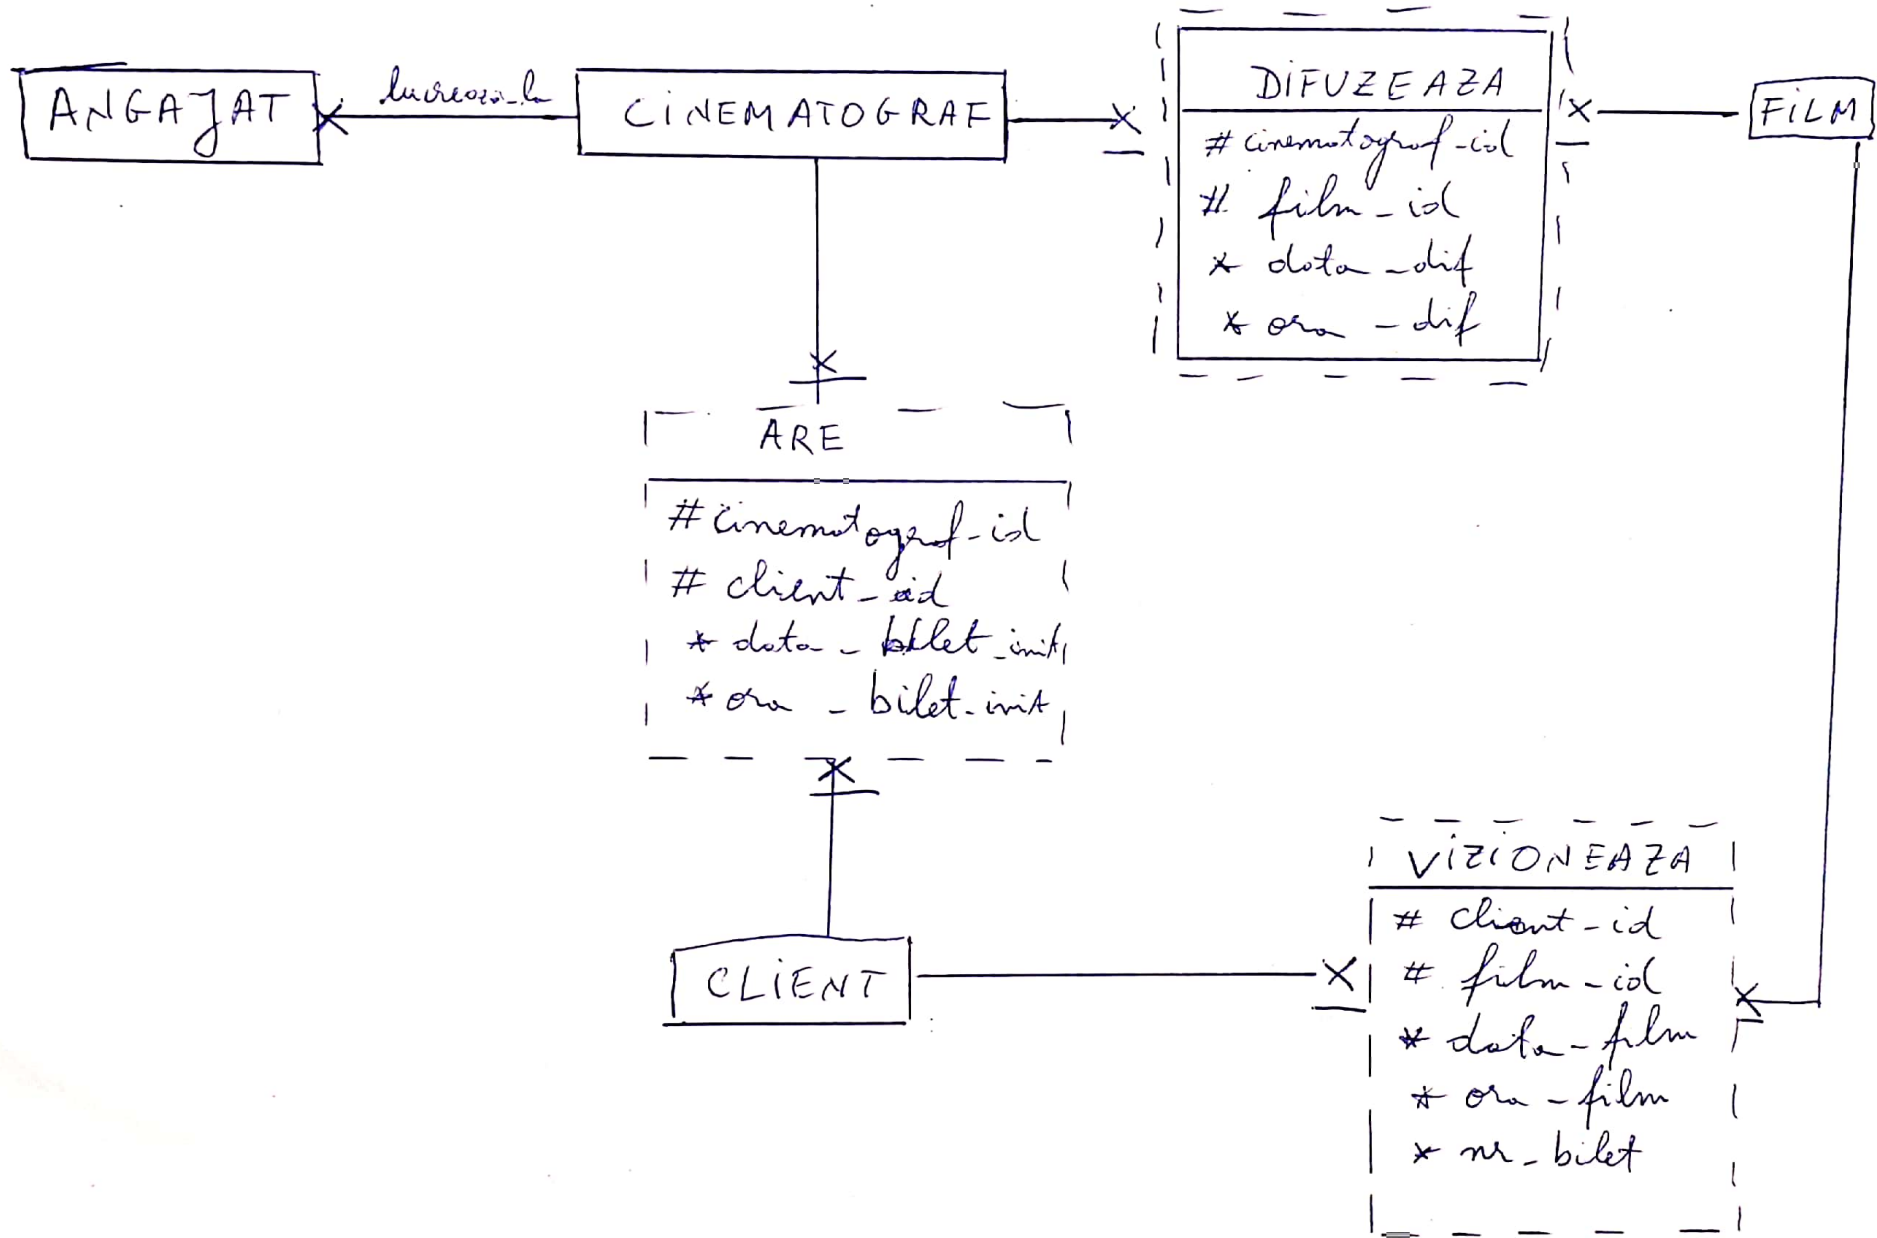 ANGAJAT
lucreaza_la
CINEMATOGRAF
DIFUZEAZA
# cinematograf-id
# film-id
* data-dif
* ora-dif
FILM
ARE
# cinematograf-id
# client-id
* data-bilet_init
* ora-bilet-init
CLIENT
VIZIONEAZA
# client-id
# film-id
* data-film
* ora-film
* nr-bilet